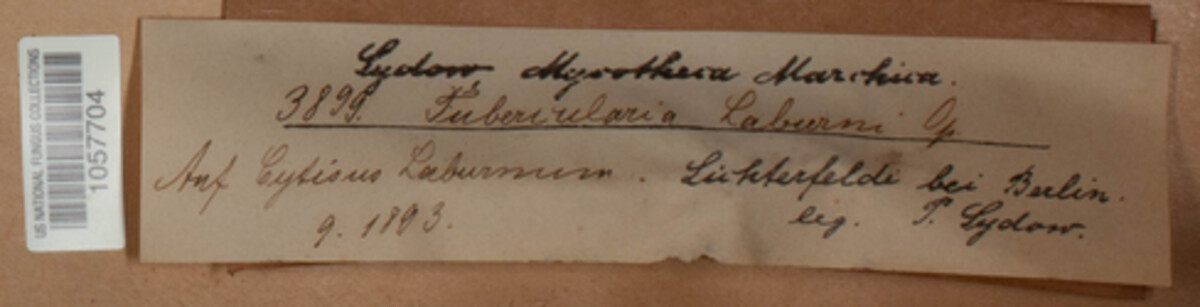 US NATIONAL FUNGUS COLLECTIONS
1057704
Sydow Mycotheca Marchica.
3899. Tubercularia Laburni Op.
Auf Cytisus Laburnum. Lichterfelde bei Berlin.
9. 1893. leg. P. Sydow.